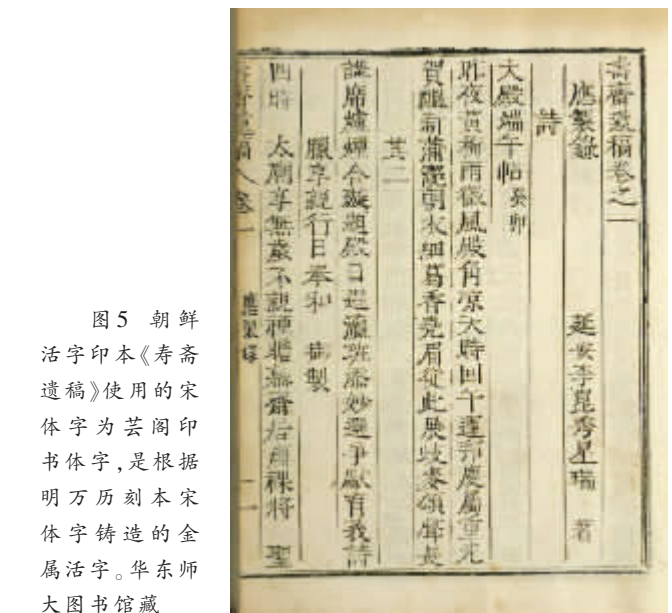 图5 朝鲜
活字印本《寿斋
遗稿》使用的宋
体字为芸阁印
书体字,是根据
明万历刻本宋
体字铸造的金
属活字。华东师
大图书馆藏
壽齋遺稿卷之一
應製錄 延安李崑秀星瑞 著
詩
大殿端午帖 癸卯
昨夜黃梅雨微風殿角凉天時回午運邦慶屬重光
賀醞司蒲朝衣細葛香堯眉從此展歧麥頌聲長
其二
講席爐煙合殿日遲瀛班添妙選爭獻有我詩
臘享親行日奉和 御製
四時 太廟享無歲不親 后用祼將 聖
壽齋遺稿 卷一 應製錄